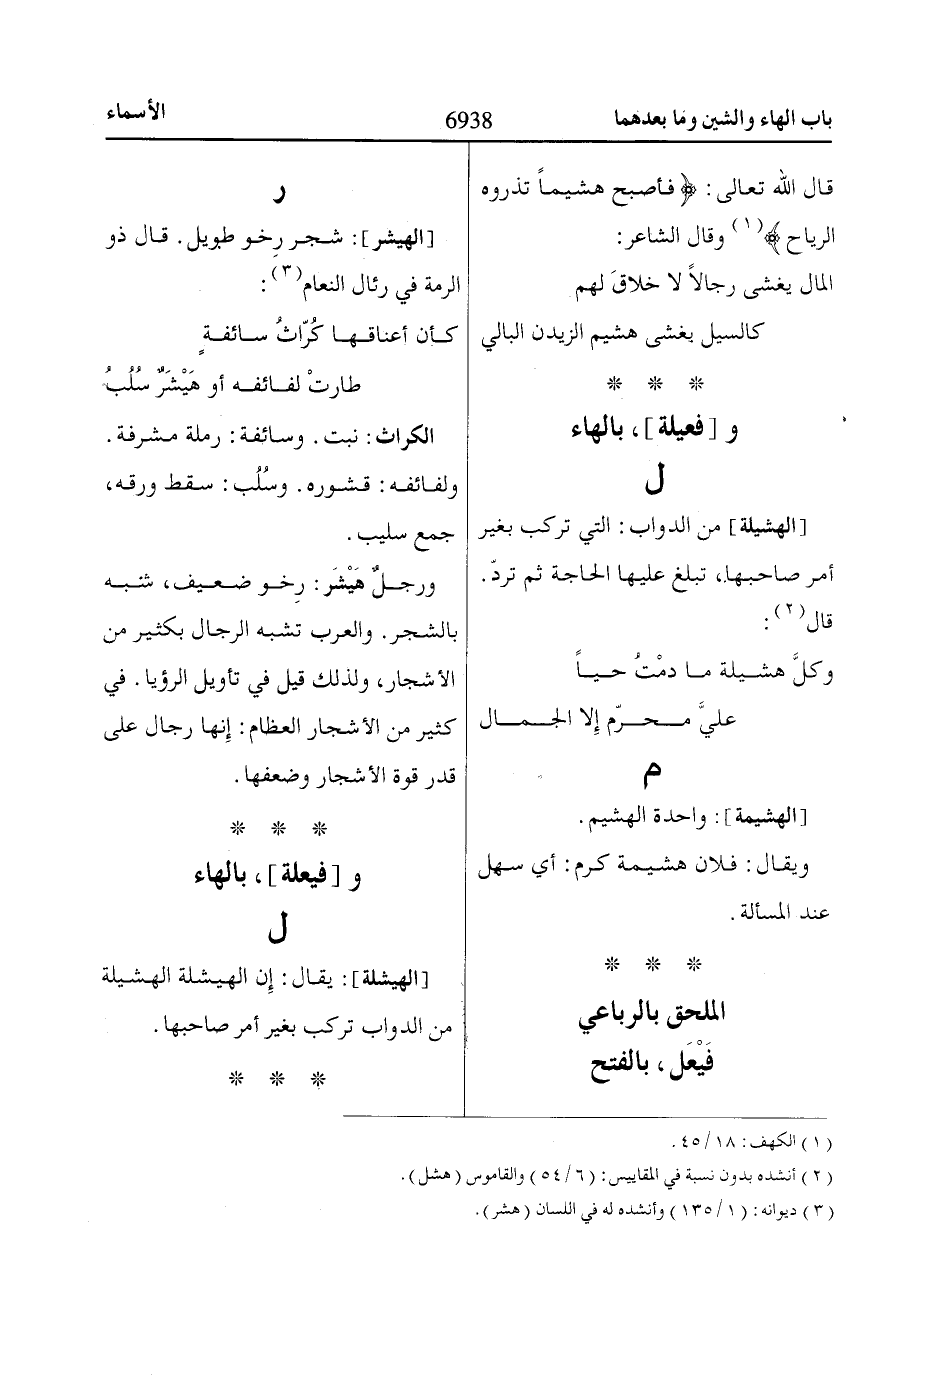 باب الهاء والشين وما بعدهما
6938
الأسماء
قال الله تعالى: ﴿ فأصبح هشيماً تذروه
الرياح ﴾(١) وقال الشاعر:
المال يغشى رجالاً لا خلاقَ لهم
كالسيل يغشى هشيم الزيدن البالي
* * *
و [فعيلة]، بالهاء
ل
[الهشيلة] من الدواب: التي تركب بغير
أمر صاحبها، تبلغ عليها الحاجة ثم تردّ.
قال(٢):
وكلَّ هشيلة ما دمْتُ حياً
عليَّ محرّم إلا الجمال
م
[الهشيمة]: واحدة الهشيم.
ويقال: فلان هشيمة كرم: أي سهل
عند المسألة.
* * *
الملحق بالرباعي
فَيْعَل، بالفتح
ر
[الهيشر]: شجر رخو طويل. قال ذو
الرمة في رئال النعام(٣):
كأن أعناقها كُرّاثُ سائفةٍ
طارتْ لفائفه أو هَيْشَرٌ سُلُبُ
الكراث: نبت. وسائفة: رملة مشرفة.
ولفائفه: قشوره. وسُلُب: سقط ورقه،
جمع سليب.
ورجلٌ هَيْشَر: رخو ضعيف، شبه
بالشجر. والعرب تشبه الرجال بكثير من
الأشجار، ولذلك قيل في تأويل الرؤيا. في
كثير من الأشجار العظام: إنها رجال على
قدر قوة الأشجار وضعفها.
* * *
و [فيعلة]، بالهاء
ل
[الهيشلة]: يقال: إن الهيشلة الهشيلة
من الدواب تركب بغير أمر صاحبها.
* * *
(١) الكهف: ٤٥/١٨.
(٢) أنشده بدون نسبة في المقاييس: (٥٤/٦) والقاموس (هشل).
(٣) ديوانه: (١٣٥/١) وأنشده له في اللسان (هشر).